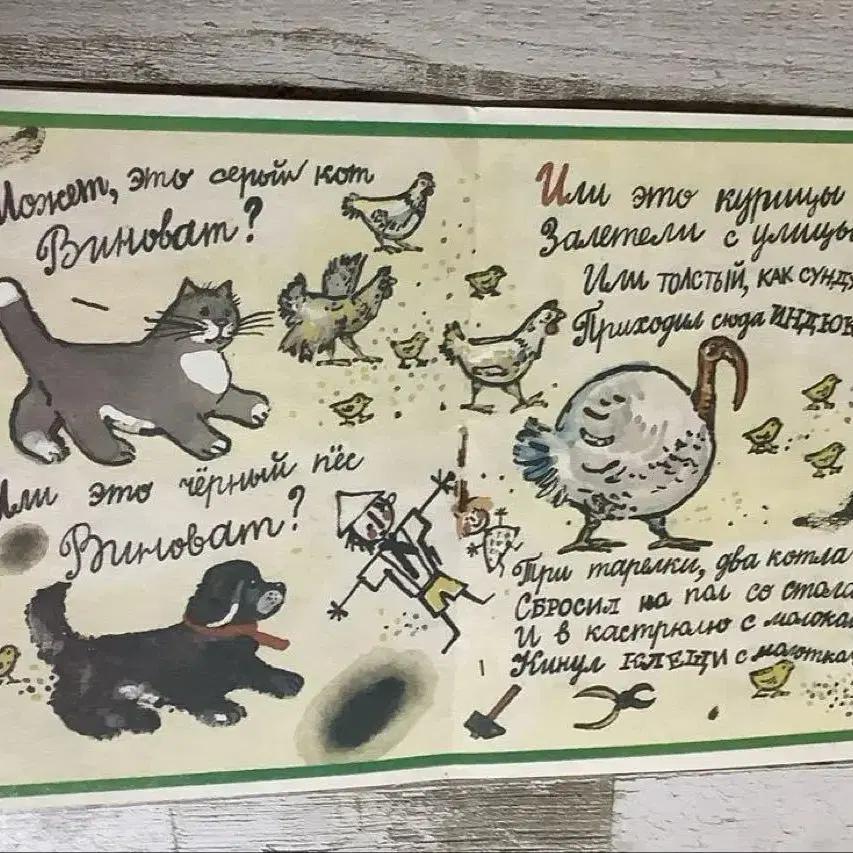 Может, это серый кот
Виноват?
Или это чёрный пёс
Виноват?
Или это курицы
Залетели с улицы
Или толстый, как сунду
Приходил сюда ИНДЮК
Три тарелки, два котла
СБРОСИЛ на пол со стола
И в кастрюлю с молоком
Кинул КЛЕЩИ с молотком